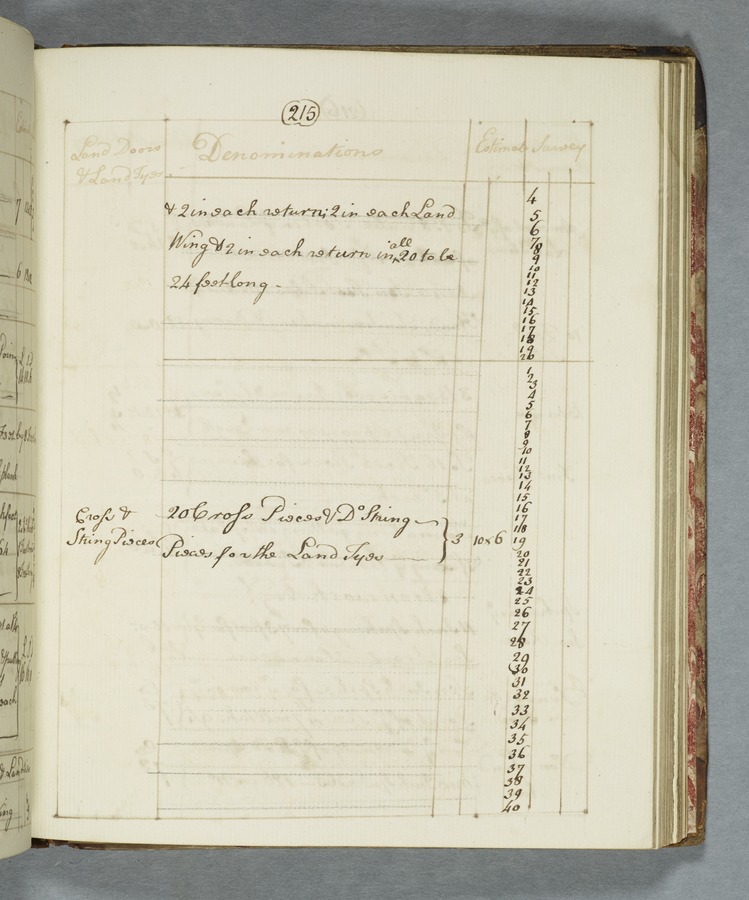 215
Land Doors
& Land Tyes
Denominations
Estimate Survey
& 2 in each return; 2 in each Land
Wing & 2 in each return in all 20 to be
24 feet long -
4
5
6
7
8
9
10
11
12
13
14
15
16
17
18
19
20
1
2
3
4
5
6
7
8
9
10
11
12
13
14
15
16
17
18
19
20
21
22
23
24
25
26
27
28
29
30
31
32
33
34
35
36
37
38
39
40
Cross &
String Pieces
20 Cross Pieces & Do String
Pieces for the Land Tyes
} 3 10 x 6